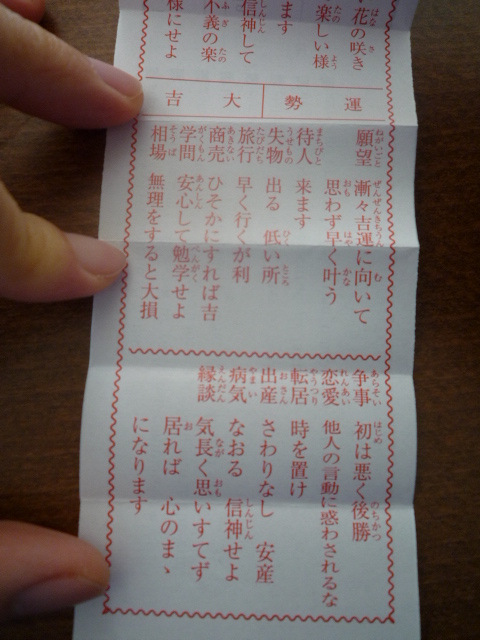 花の咲き
楽しい様
ます
信神して
不義の楽
様にせよ
運勢 大吉
願望 漸々吉運に向いて
思わず早く叶う
待人 来ます
失物 出る 低い所
旅行 早く行くが利
商売 ひそかにすれば吉
学問 安心して勉学せよ
相場 無理をすると大損
争事 初は悪く後勝
恋愛 他人の言動に惑わされるな
転居 時を置け
出産 さわりなし 安産
病気 なおる 信神せよ
縁談 気長く思いすてず
居れば 心のまゝ
になります